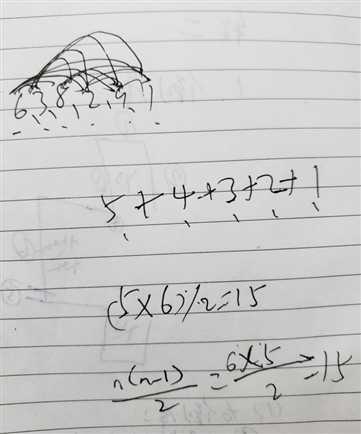 6, 3, 8, 2, 9, 1
5 + 4 + 3 + 2 + 1
(5×6)/2=15
n(n-1)/2 = 6×5/2 = 15